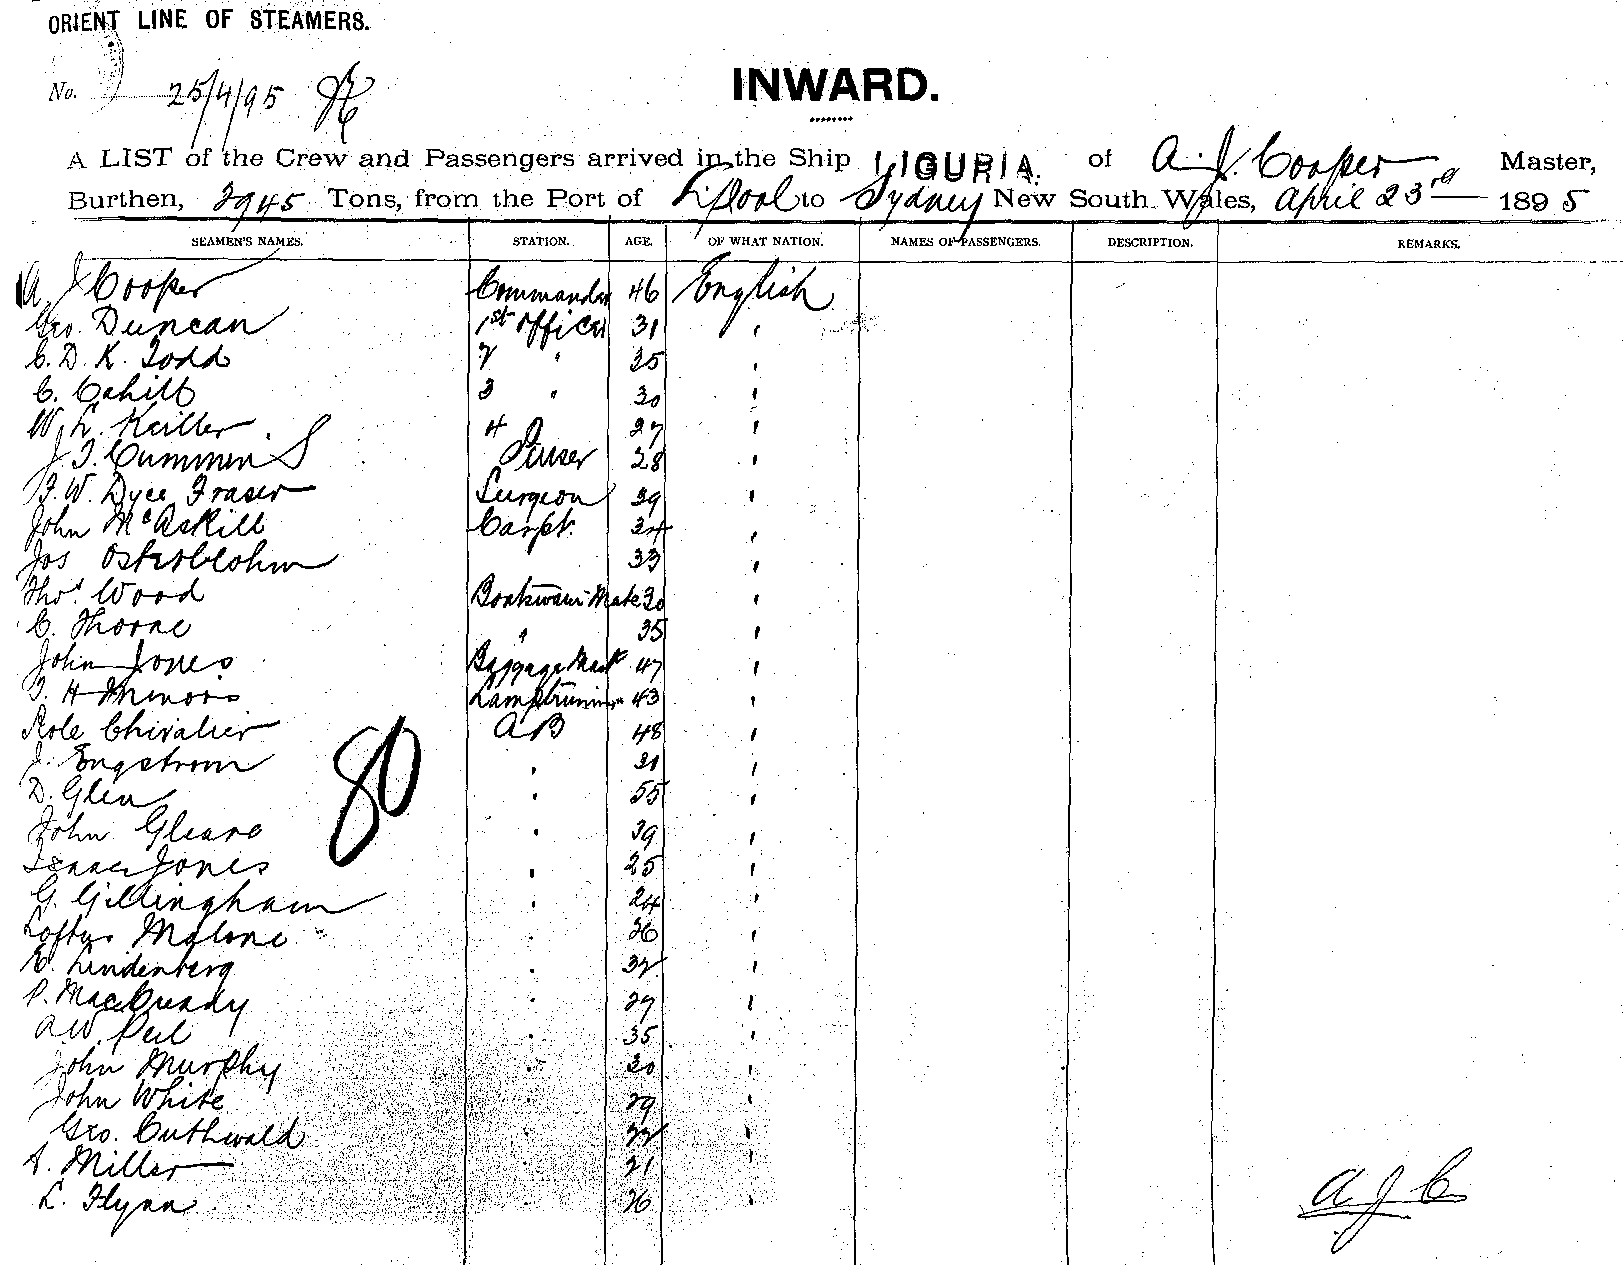 ORIENT LINE OF STEAMERS.
No. 25/4/95
INWARD.
A LIST of the Crew and Passengers arrived in the Ship LIGURIA. of A. J. Cooper Master,
Burthen, 2945 Tons, from the Port of L'pool to Sydney New South Wales, April 23rd 1895
SEAMEN'S NAMES. STATION. AGE. OF WHAT NATION. NAMES OF PASSENGERS. DESCRIPTION. REMARKS.
A J Cooper Commander 46 English
Geo. Duncan 1st Officer 31 "
C. D. K. Todd 2 " 35 "
C. Cahill 3 " 30 "
W. L. Keiller 4 27 "
J. T. Cummins Purser 28 "
F. W. Dyce Fraser Surgeon 39 "
John McAskill Carpt. 34 "
Jos 33 "
Thos. Wood Boatswain Mate 30 "
C. Thorne " 35 "
John Jones Baggage Mast 47 "
T. H. Minors Lamptrimmer 43 "
Chivalier AB 48 "
J. Engstrom " 31 "
D. Glen " 55 "
80
John Gleave " 39 "
Isaac Jones " 25 "
G. Gillingham " 24 "
Loftus Malone " 36 "
E. Lindenberg " 32 "
P. MacCready " 29 "
A. W. Peel " 35 "
John Murphy " 30 "
John White " 29 "
Geo. Cuthwald 22 "
A. Miller 21 "
L. Flynn 26 "
A J C